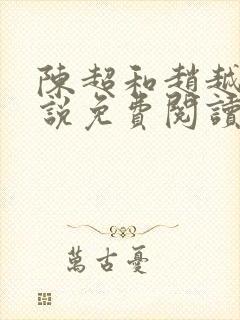 陳超和趙越
說免費閱讀
萬古憂